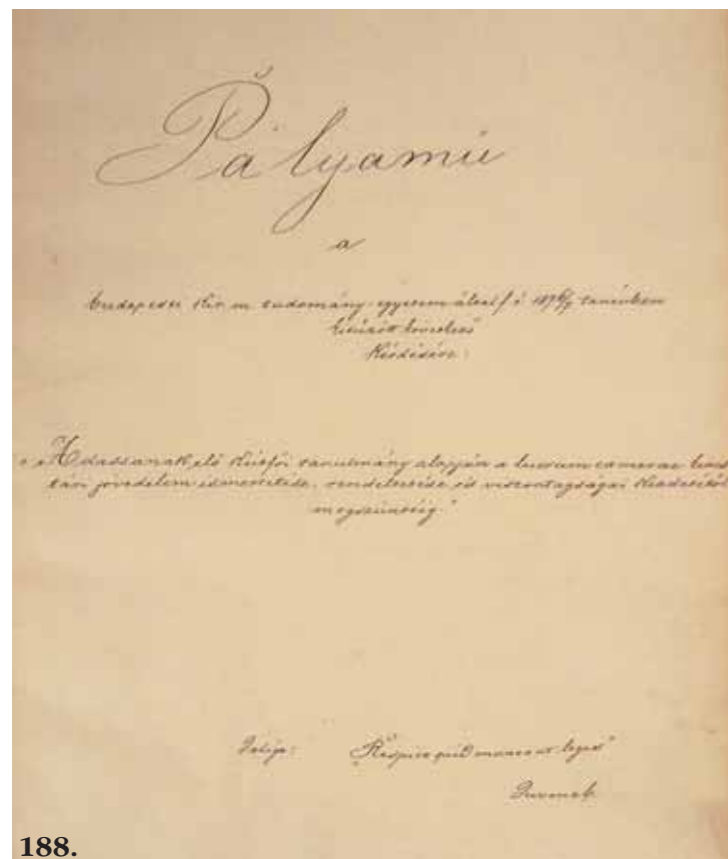 Pályamű
a
budapesti kir. m. tudomány-egyetem által f. é. 1876/7 tanévben
kitűzött következő
kérdésére:
"Adassanak elő kútfői tanulmány alapján a lucrum camerae kincs
tári jövedelem ismertetése, rendeltetése és viszontagságai kezdetétől
megszűnéséig."
Jelige: "Respice quid moneant leges"
Juvenal.
188.